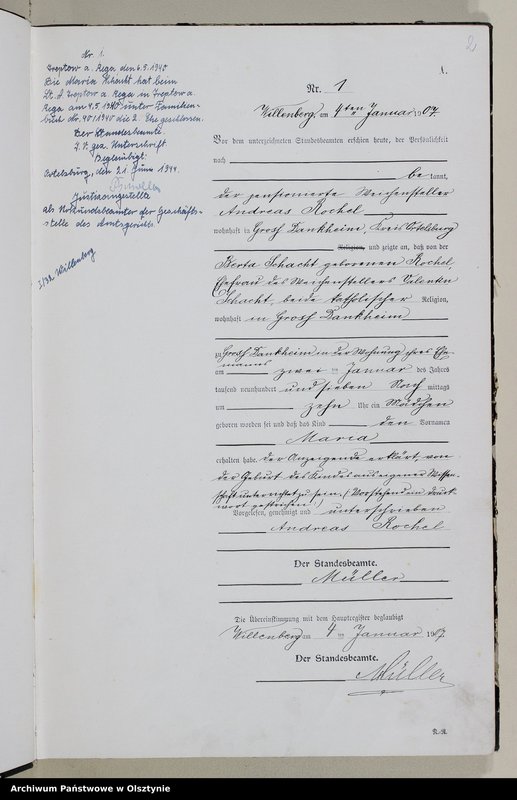 2
Nr. 1.
Treptow a. Rega den 6.5.1940
Die Maria Schacht hat beim
St. A Treptow a. Rega in Treptow a.
Rega am 4.5.1940 unter Familien-
buch Nr. 901/1940 die 2. Ehe geschlossen.
Der Standesbeamte.
J. V. gez. Unterschrift
Beglaubigt:
Ortelsburg, den 21. Juni 1944.
Justizangestellte
als Urkundsbeamter der Geschäfts-
stelle des Amtsgerichts.
Willenberg
A.
Nr. 1
Willenberg, am 4ten Januar 1907.
Vor dem unterzeichneten Standesbeamten erschien heute, der Persönlichkeit
nach
be kannt,
der pensionierte Weichensteller
Andreas Rochel
wohnhaft in Groß Dankheim, Kreis Ortelsburg
Religion, und zeigte an, daß von der
Berta Schacht geborenen Rochel,
Ehefrau des Weichenstellers Valentin
Schacht, beide katholischer Religion,
wohnhaft in Groß Dankheim
zu Groß Dankheim in der Wohnung ihres Ehe-
manns
am zwei ten Januar des Jahres
tausend neunhundert und sieben Nach mittags
um zehn Uhr ein Mädchen
geboren worden sei und daß das Kind den Vornamen
Maria
erhalten habe. Der Anzeigende erklärt, von
der Geburt des Kindes aus eigener Wissen-
schaft unterrichtet zu sein. (Vorstehend ein Druck-
wort gestrichen.)
Vorgelesen, genehmigt und unterschrieben
Andreas Rochel
Der Standesbeamte.
Müller
Die Übereinstimmung mit dem Hauptregister beglaubigt
Willenberg am 4 ten Januar 1907.
Der Standesbeamte.
Müller
Archiwum Państwowe w Olsztynie